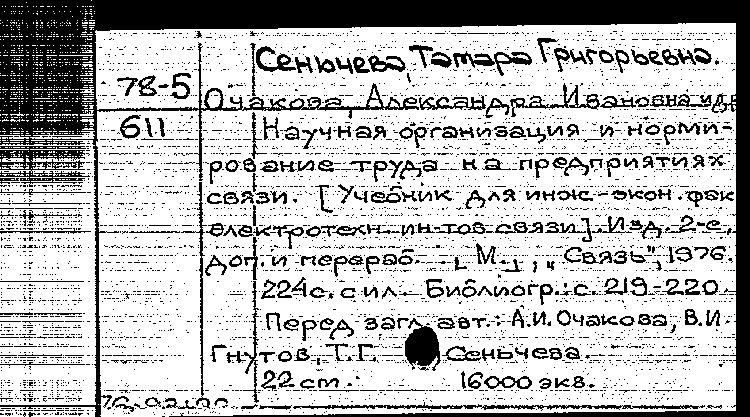 Сенычева, Тамара Григорьевна.
78-5
Очакова, Александра Ивановна и др
611
Научная организация и норми-
рование труда на предприятиях
связи. [Учебник для инж.-экон. фак
электротехн. ин-тов связи]. Изд. 2-е,
доп. и перераб. [М.], „Связь", 1976.
224 с. с ил. Библиогр.: с. 219-220.
Перед загл. авт.: А.И. Очакова, В.И.
Гнутов, Т.Г. Сенычева.
22 cm. 16000 экз.